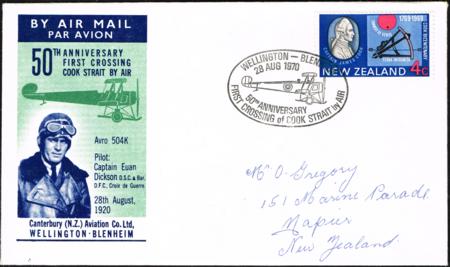 BY AIR MAIL
PAR AVION
50TH ANNIVERSARY
FIRST CROSSING
COOK STRAIT BY AIR
Avro 504K
Pilot:
Captain Euan
Dickson D.S.C. & Bar,
D.F.C., Croix de Guerre
28th August,
1920
Canterbury (N.Z.) Aviation Co. Ltd,
WELLINGTON - BLENHEIM
WELLINGTON - BLENHEIM
28 AUG 1970
50TH ANNIVERSARY
FIRST CROSSING of COOK STRAIT by AIR
1769-1969
COOK BICENTENARY
CAPTAIN JAMES COOK
NEW ZEALAND 4c
Mr O. Gregory
151 Marine Parade
Napier
New Zealand.